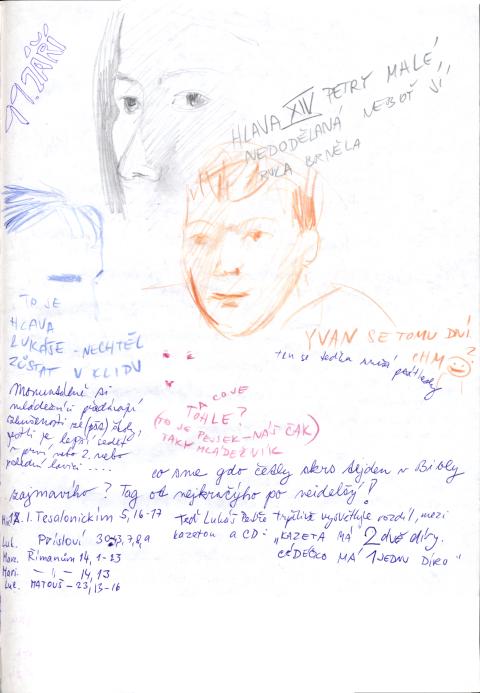 17. ZÁŘÍ
HLAVA XIV PETRY MALÉ,
NEDODĚLANÁ NEBOŤ JÍ
RUKA BRNĚLA
TO JE
HLAVA
LUKÁŠE - NECHTĚL
ZŮSTAT V KLIDU
YVAN SE TOMU DIVÍ
CHM
?
ten se teďka
Momentálně si
mládežníci předávají
zkušenosti ze (pro) školy,
jestli je lepší sedět
v první nebo 2. nebo
poslední lavici ....
A CO JE
TOHLE?
(TO JE PEJSEK - NÁŠ ČAK)
TAKY MLÁDEŽNÍK
co sme gdo četly skrs týden v Bibly
zajmavího? Tag od nejkračýho po neidelšý!
1. Tesalonickým 5, 16-17
Luk. Přísloví 30, 7,8,9
Marc. Římanům 14, 1-23
Mari. -"- 14, 13
Luc. MATOUŠ - 23, 13-16
Teď Lukáš Petře trpělivě vysvětluje rozdíl, mezi
kazetou a CD: „KAZETA MÁ 2 dvě díry.
CÉDÉČKO MÁ 1 JEDNU DÍRO"